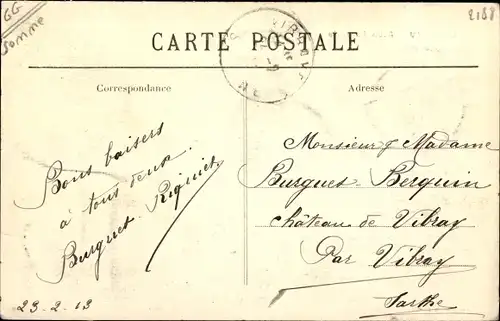 GG
Somme
2188
CARTE POSTALE
Correspondance
Adresse
Bons baisers
à tous deux.
Burguet-Riquiet
23-2-13
Monsieur & Madame
Burguet-Berquin
château de Vibray
Par Vibray
Sarthe